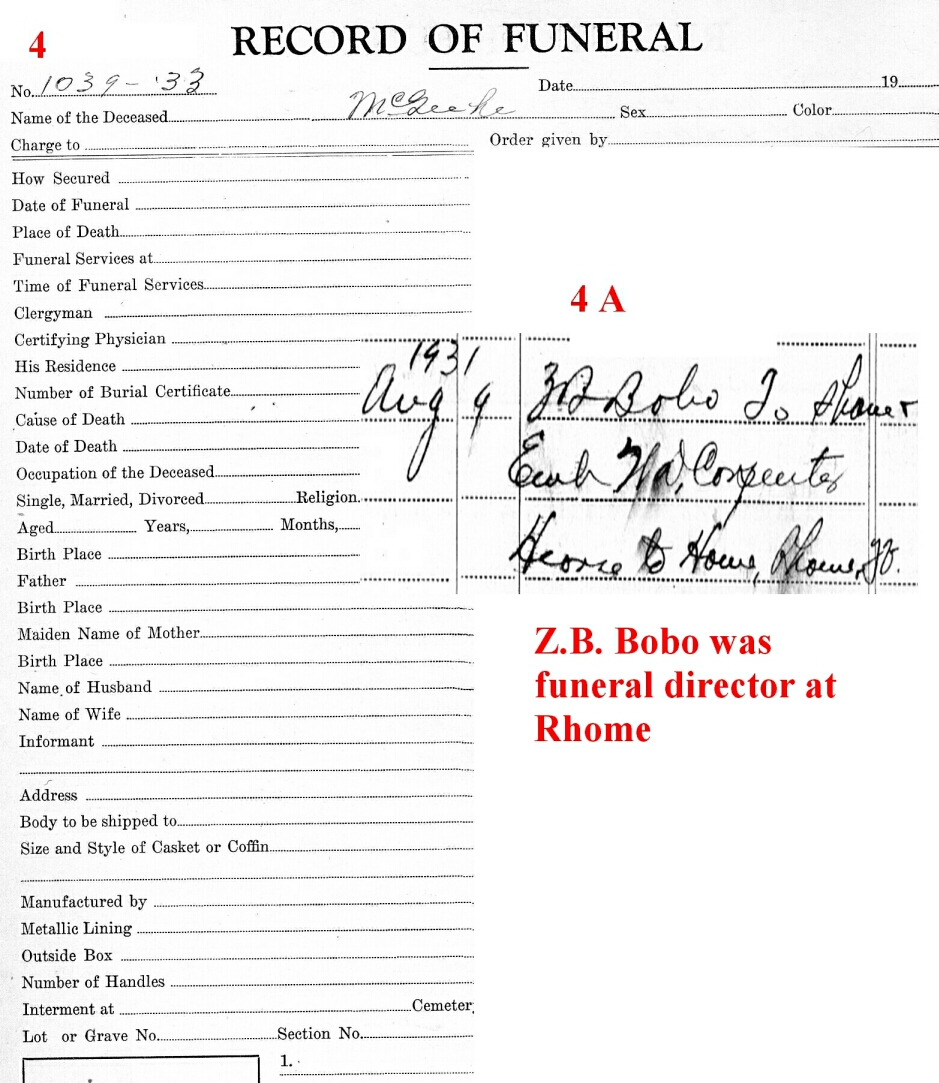 4
RECORD OF FUNERAL
No. 1039-'33
Date 19
Name of the Deceased McGeehe Sex Color
Charge to Order given by
How Secured
Date of Funeral
Place of Death
Funeral Services at
Time of Funeral Services
Clergyman
Certifying Physician
His Residence
Number of Burial Certificate
Cause of Death
Date of Death
Occupation of the Deceased
Single, Married, Divorced Religion.
Aged Years, Months,
Birth Place
Father
Birth Place
Maiden Name of Mother
Birth Place
Name of Husband
Name of Wife
Informant
Address
Body to be shipped to
Size and Style of Casket or Coffin
Manufactured by
Metallic Lining
Outside Box
Number of Handles
Interment at Cemeter
Lot or Grave No. Section No.
1.
4 A
1931
Aug 9 ZB Bobo To
Emb Carpenter
to Home,
Z.B. Bobo was
funeral director at
Rhome